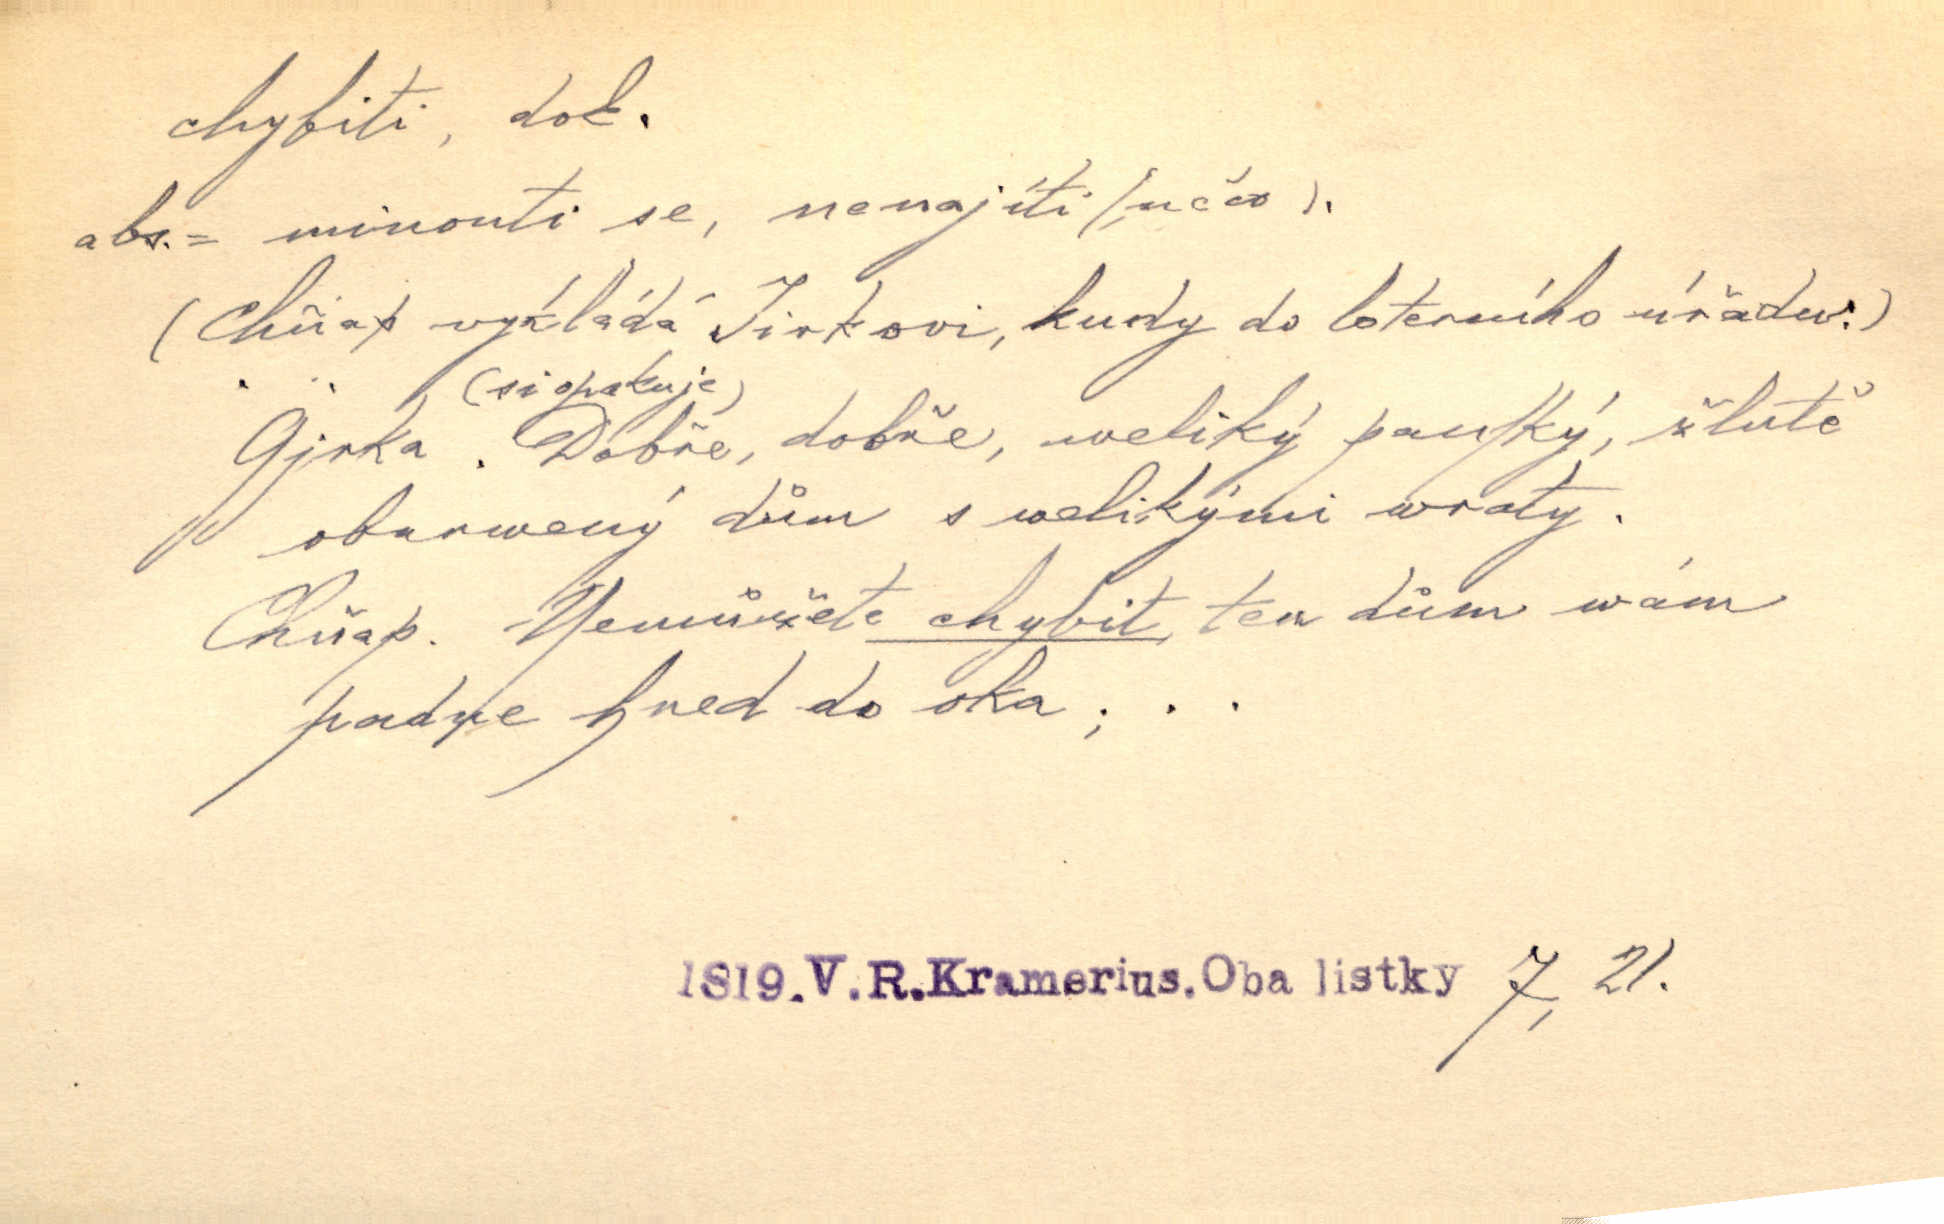 chybiti, dok.
abs. = minouti se, nenajíti (něčeho).
(Chňap vykládá Jirkovi, kudy do loterního úřadu:)
(si opakuje)
Gjrka. Dobře, dobře, weliký panſký, žlutě
obarwený dům s welikými wraty.
Chňap. Nemůžete chybit, ten dům wám
padne hned do oka; . .
1819. V. R. Kramerius. Oba listky 7, 21.